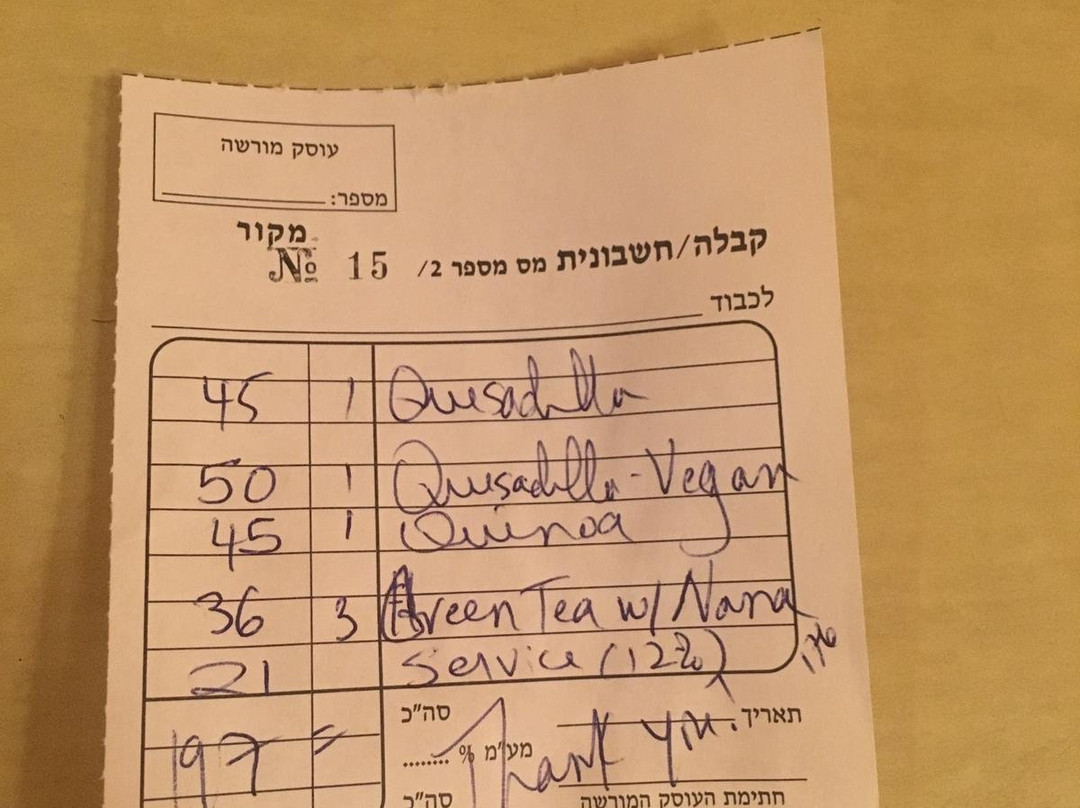 עוסק מורשה
מספר:
מקור
קבלה/חשבונית מס מספר 2/ 15 №
לכבוד
45 1 Quesadilla
50 1 Quesadilla-Vegan
45 1 Quinoa
36 3 Green Tea w/ Nana
21 Service (12%)
197 =
סה"כ
תאריך
Thank you.
מע"מ %
סה"כ
חתימת העוסק המורשה